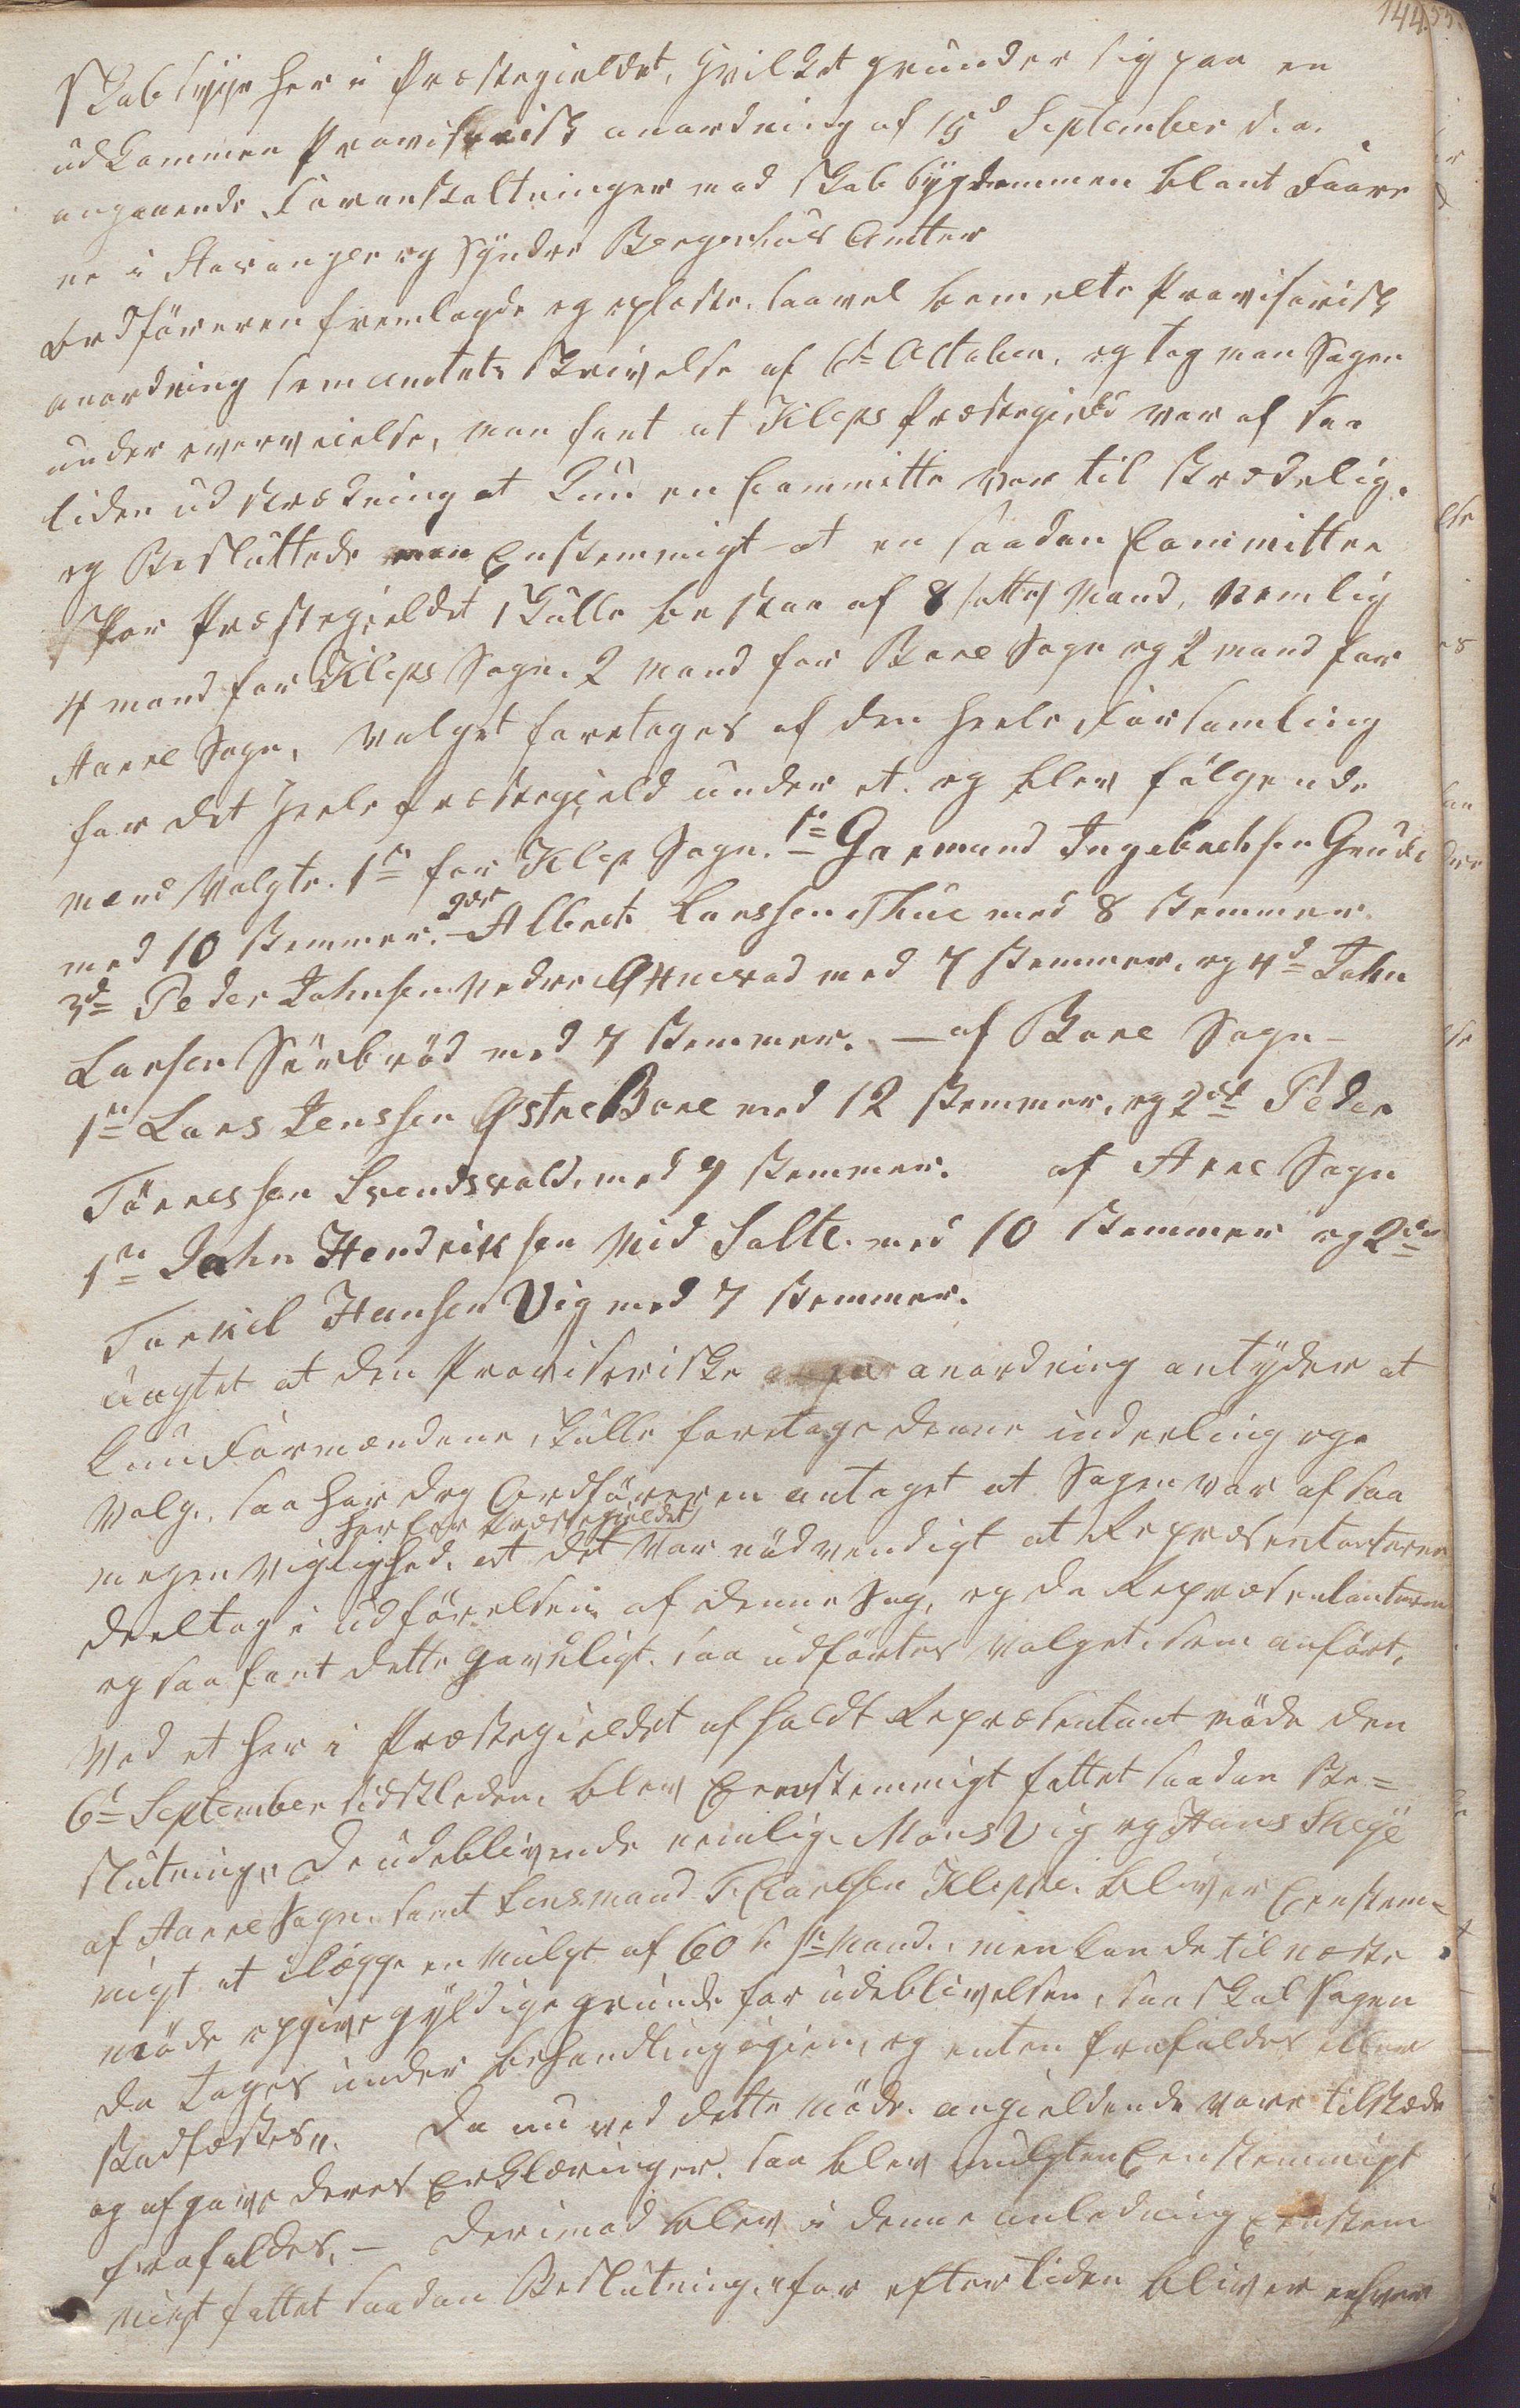 144.
Skabsyge her i Præstegieldet, hvilket grunder sig paa en
udkommen Provisorisk anordning af 15d September d.a.
angaaende Foranstaltninger mod Skabsygdommen blant Faare
ne i Stavanger og Syndre Bergenhus Amter
Ordföreren fremlagde og oplæste saavel bemelte Provisorisk
anordning som amtets Skrivelse af 6te October, og tog man Sagen
under overveielse, man fant at Kleps Præstegield var af saa
liden udstrækning at kun en Committe var tilstrækelig.
og Besluttede man Enstemmigt at en saadan Committee
for Præstegieldet skulle bestaa af 8 /otte/ Mand, nemlig
4 mand for Kleps Sogn. 2 Mand for Bore Sogn og 2 mand for
Aarre Sogn, valget foretages af den heele Forsamling
for det heele præstegield under et. og blev følgende
mænd Valgte. 1te for Klep Sogn. 1te Garmund Ingebretsen Grude
med 10 Stemmer. 2den Albert Larssen Thue med 8 Stemmer.
3die Peder Johnsen Nedre Øxnevad med 7 Stemmer, og 4de John
Larsen Sörbröd med 7 Stemmer. — af Bore Sogn —
1te Lars Jenssen Østre Bore med 12 Stemmer, og 2det Peder
Törressen Svendsvold, med 9 Stemmer. af Arre Sogn
1te John Hendriksen Mid Salte. med 10 Stemmer og 2den
Torkil Hansen Vig med 7 Stemmer.
uagtet at den Provisoriske anordning antyder at
kun Formændene, skulle foretage denne inddeeling og
Valg, saa har dog Ordföreren antaget at Sagen var af saa
her for Præstegieldet
megen vigtighed, at det var nödvendigt at Repræsentanterne
deeltog i udförelsen af denne Sag, og da Repræsentanterne
og saa fant dette gavnligt. saa udförtes valget som anfört,
Ved et her i Præstegieldet afholdt Repræsentant möde den
6te September sidstleden, blev Eenstemmigt fattet saadan Be=
slutning, De udeblivende nemlig. Mons Vig og Hans Skeje
af Aarre Sogn. samt Lensmand T. Carlsen Kleppe. bliver Eenstem=
migt at ilægge en Mulgt af 60 s pr Mand, men kan de til næste
möde opgive gyldige grunde for udeblivelsen, saa skal Sagen
da tages under behandling igien, og enten frafaldes eller
stadfæstes". Da nu ved dette möde. angieldende vare tilstæde
og afgave deres Erklæringer. saa blev mulgten Eenstemmigt
frafaldes. — Derimod blev i denne anledning Eenstem
migt fattet saadan Beslutning, for eftertiden bliver enhver